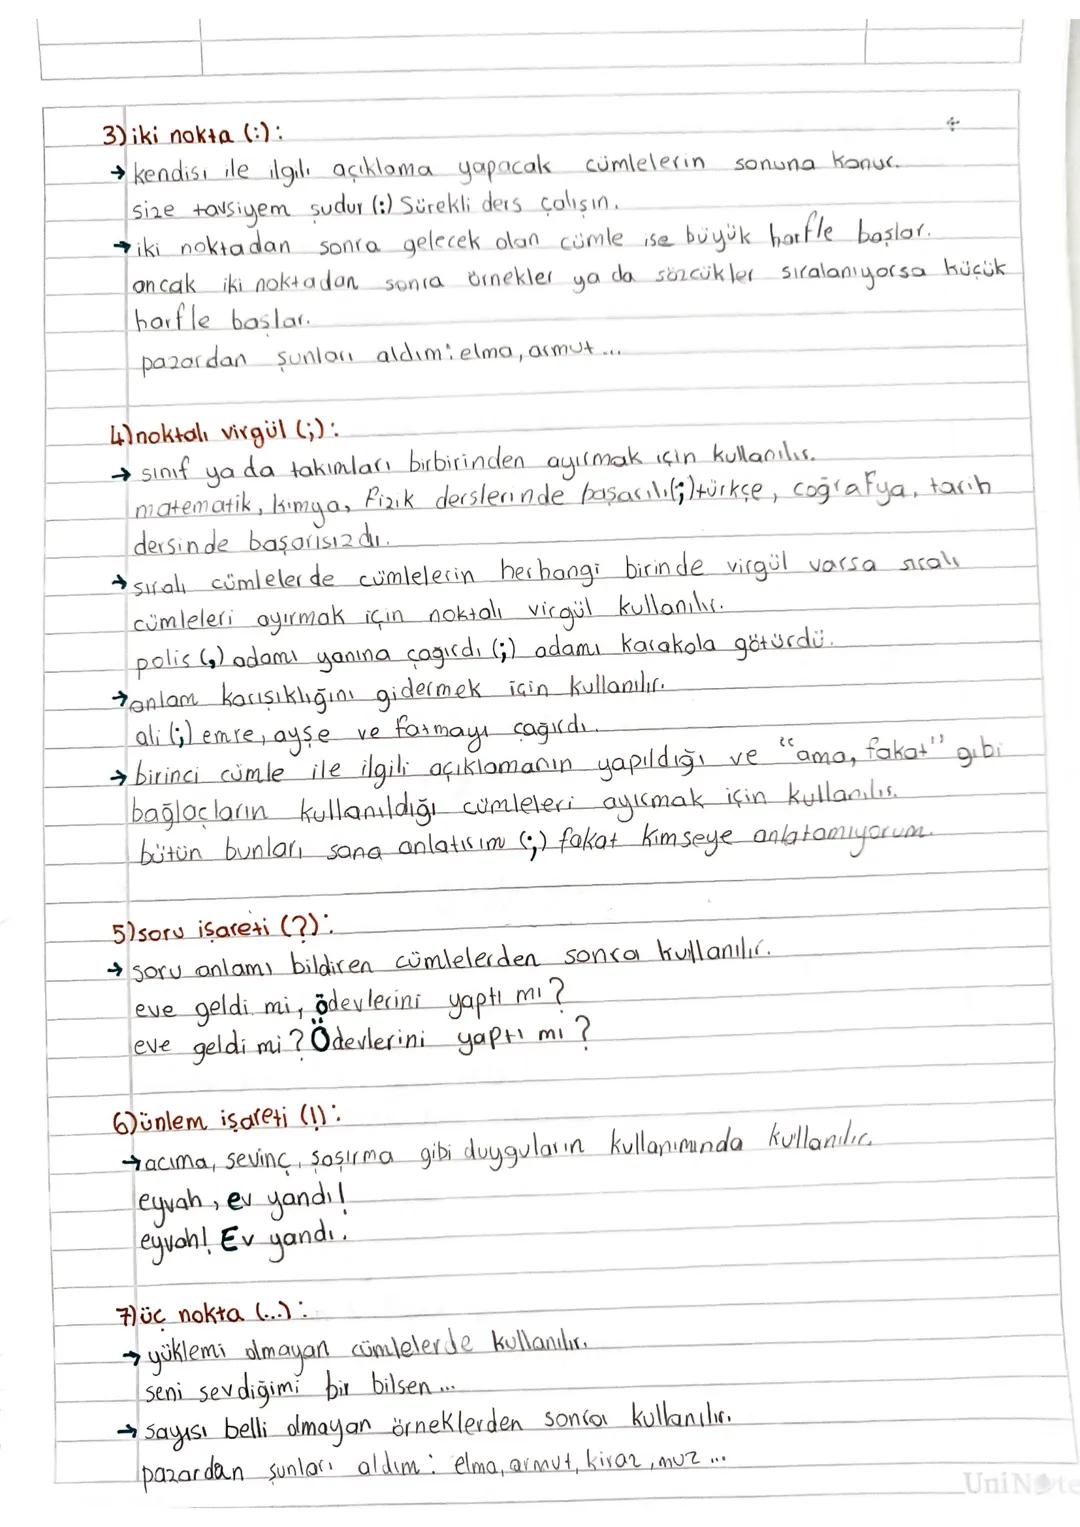 3) iki nokta (:):
→ kendisi ile ilgili açıklama yapacak cümlelerin sonuna konur.
size tavsiyem şudur (:) Sürekli ders çalışın.
→ iki noktadan sonra gelecek olan cümle ise büyük harfle başlar.
ancak iki noktadan sonra örnekler ya da sözcükler sıralanıyorsa küçük
harfle başlar.
pazardan şunları aldım: elma, armut ...
4) noktalı virgül (;):
→ sınıf ya da takımları birbirinden ayırmak için kullanılır.
matematik, kimya, fizik derslerinde başarılı (;) türkçe, coğrafya, tarih
dersinde başarısızdı.
→ sıralı cümlelerde cümlelerin herhangi birinde virgül varsa sıralı
cümleleri ayırmak için noktalı virgül kullanılır.
polis (,) adamı yanına çağırdı (;) adamı karakola götürdü.
→ anlam karışıklığını gidermek için kullanılır.
ali (;) emre, ayşe ve fatmayı çağırdı.
→ birinci cümle ile ilgili açıklamanın yapıldığı ve "ama, fakat" gibi
bağlaçların kullanıldığı cümleleri ayırmak için kullanılır.
bütün bunları sana anlatırım (;) fakat kimseye anlatamıyorum.
5) soru işareti (?):
→ soru anlamı bildiren cümlelerden sonra kullanılır.
eve geldi mi, ödevlerini yaptı mı?
eve geldi mi? Ödevlerini yaptı mı?
6) ünlem işareti (!):
→ acıma, sevinç, şaşırma gibi duyguların kullanımında kullanılır.
eyvah, ev yandı!
eyvah! Ev yandı.
7) üç nokta (...):
→ yüklemi olmayan cümlelerde kullanılır.
seni sevdiğimi bir bilsen ...
→ sayısı belli olmayan örneklerden sonra kullanılır.
pazardan şunları aldım: elma, armut, kiraz, muz ...
UniNote